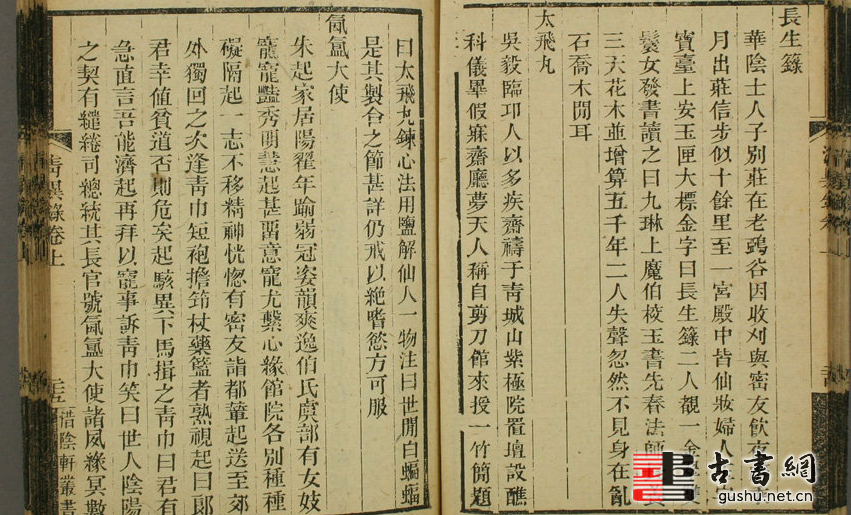 長生籙
華陰士人子別莊在老鴟谷因收刈與密友飲夜
月出莊信步似十餘里至一宮殿中皆仙妝婦人
寶臺上安玉匣大標金字曰長生籙二人覩一金
鬟女發書讀之曰九琳上魔伯棱玉書先春法師
三天花木並增算五千年二人失聲忽然不見身在亂
石喬木閒耳
太飛丸
吳毅臨邛人以多疾齋禱于靑城山紫極院置壇設醮
科儀畢假寐齋廳夢天人稱自剪刀館來授一竹簡題
曰太飛丸鍊心法用鹽解仙人一物注曰世閒白蝙蝠
是其製合之節甚詳仍戒以絶嗜慾方可服
氤氳大使
朱起家居陽翟年踰弱冠姿韻爽逸伯氏虞部有女妓
寵寵豔秀明慧起甚畱意寵尤繫心緣館院各別種種
礙隔起一志不移精神恍惚有密友詣都輦起送至郊
外獨回之次逢靑巾短袍擔笻杖藥籃者熟視起曰郎
君幸値貧道否則危矣起駭異下馬揖之靑巾曰君有
急直言吾能濟起再拜以寵事訴靑巾笑曰世人陰陽
之契有繾綣司總統其長官號氤氳大使諸夙緣冥數
靑異錄卷上
惜陰軒叢書
古書網
gushu.net.cn